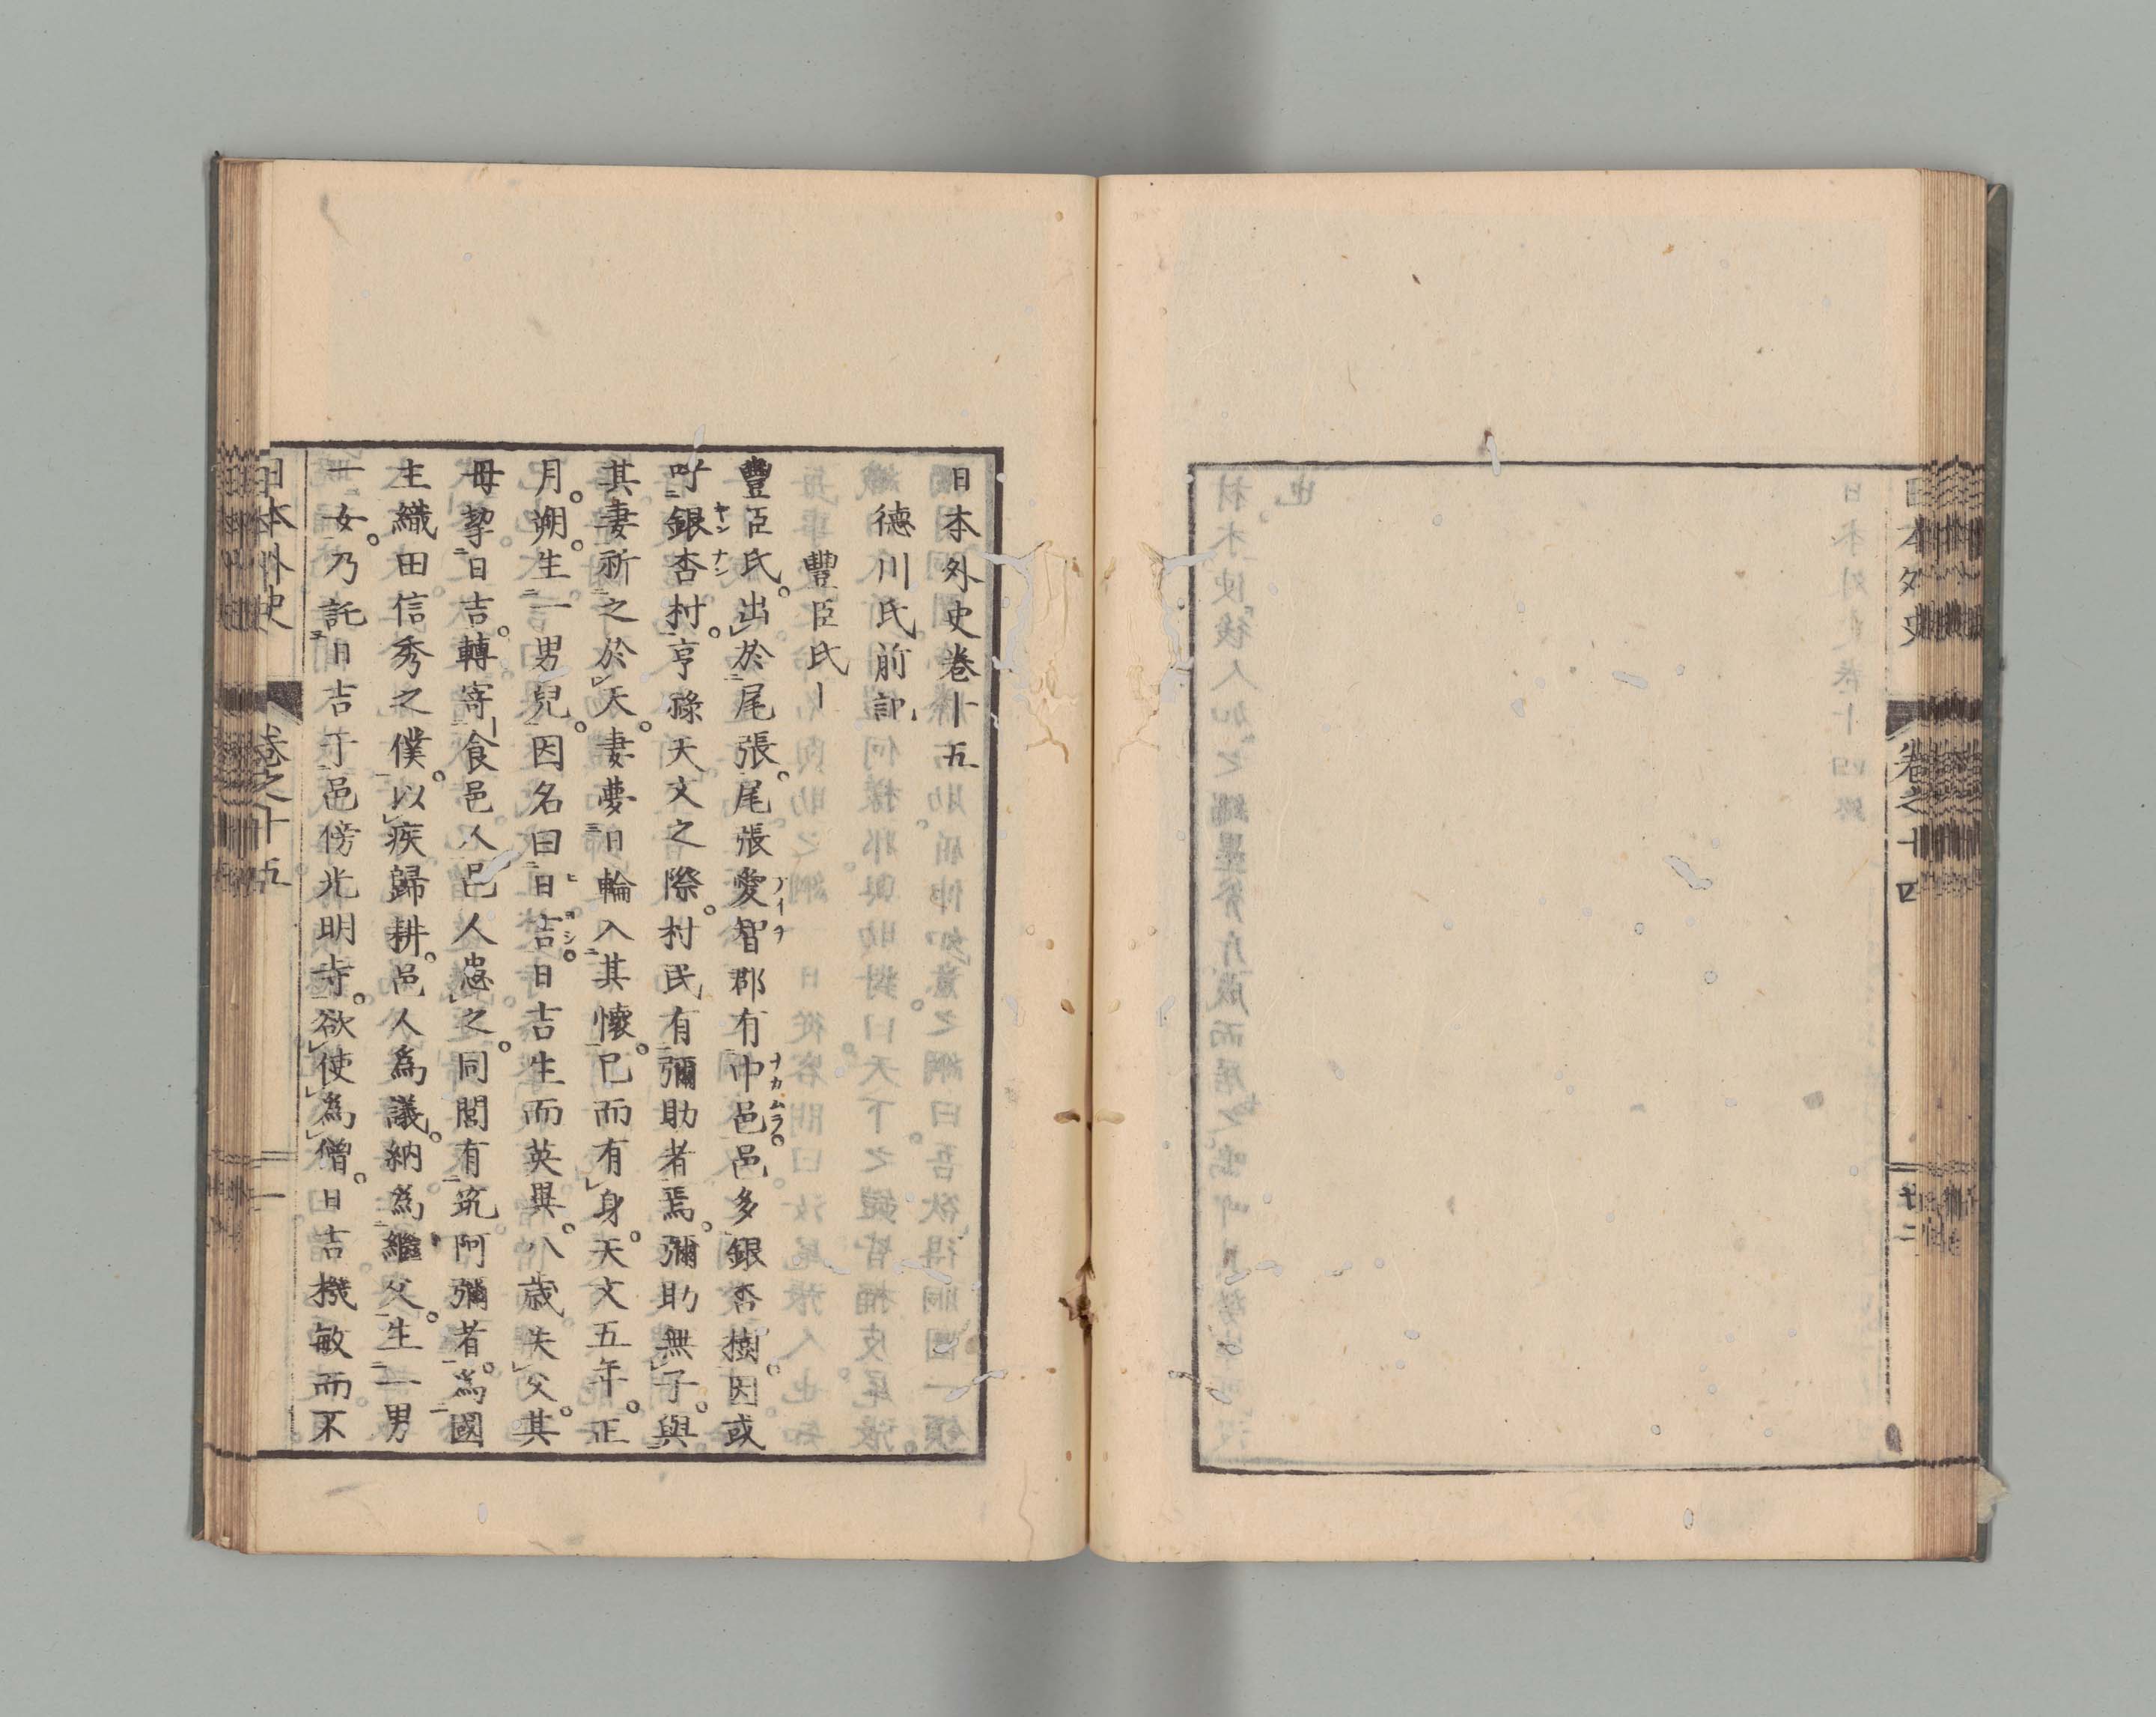 日本外史
卷之十四
廿二
日本外史卷十五
德川氏前記
豐臣氏上
豐臣氏。出於尾張。尾張愛智郡有中邑。邑多銀杏樹。因或
呼銀杏村。亨祿天文之際。村民有彌助者焉。彌助無子。與
其妻祈之於天。妻夢日輪入其懷。已而有身。天文五年。正
月。朔。生一男兒。因名曰日吉。日吉生而英異。八歲失父。其
母挈日吉。轉寄食邑人。邑人患之。同閭有筑阿彌者。爲國
主織田信秀之僕。以疾歸耕。邑人爲議。納爲繼父。生一男
一女。乃託日吉于邑傍光明寺。欲使爲僧。日吉機敏而不
日本外史
卷之十五
一